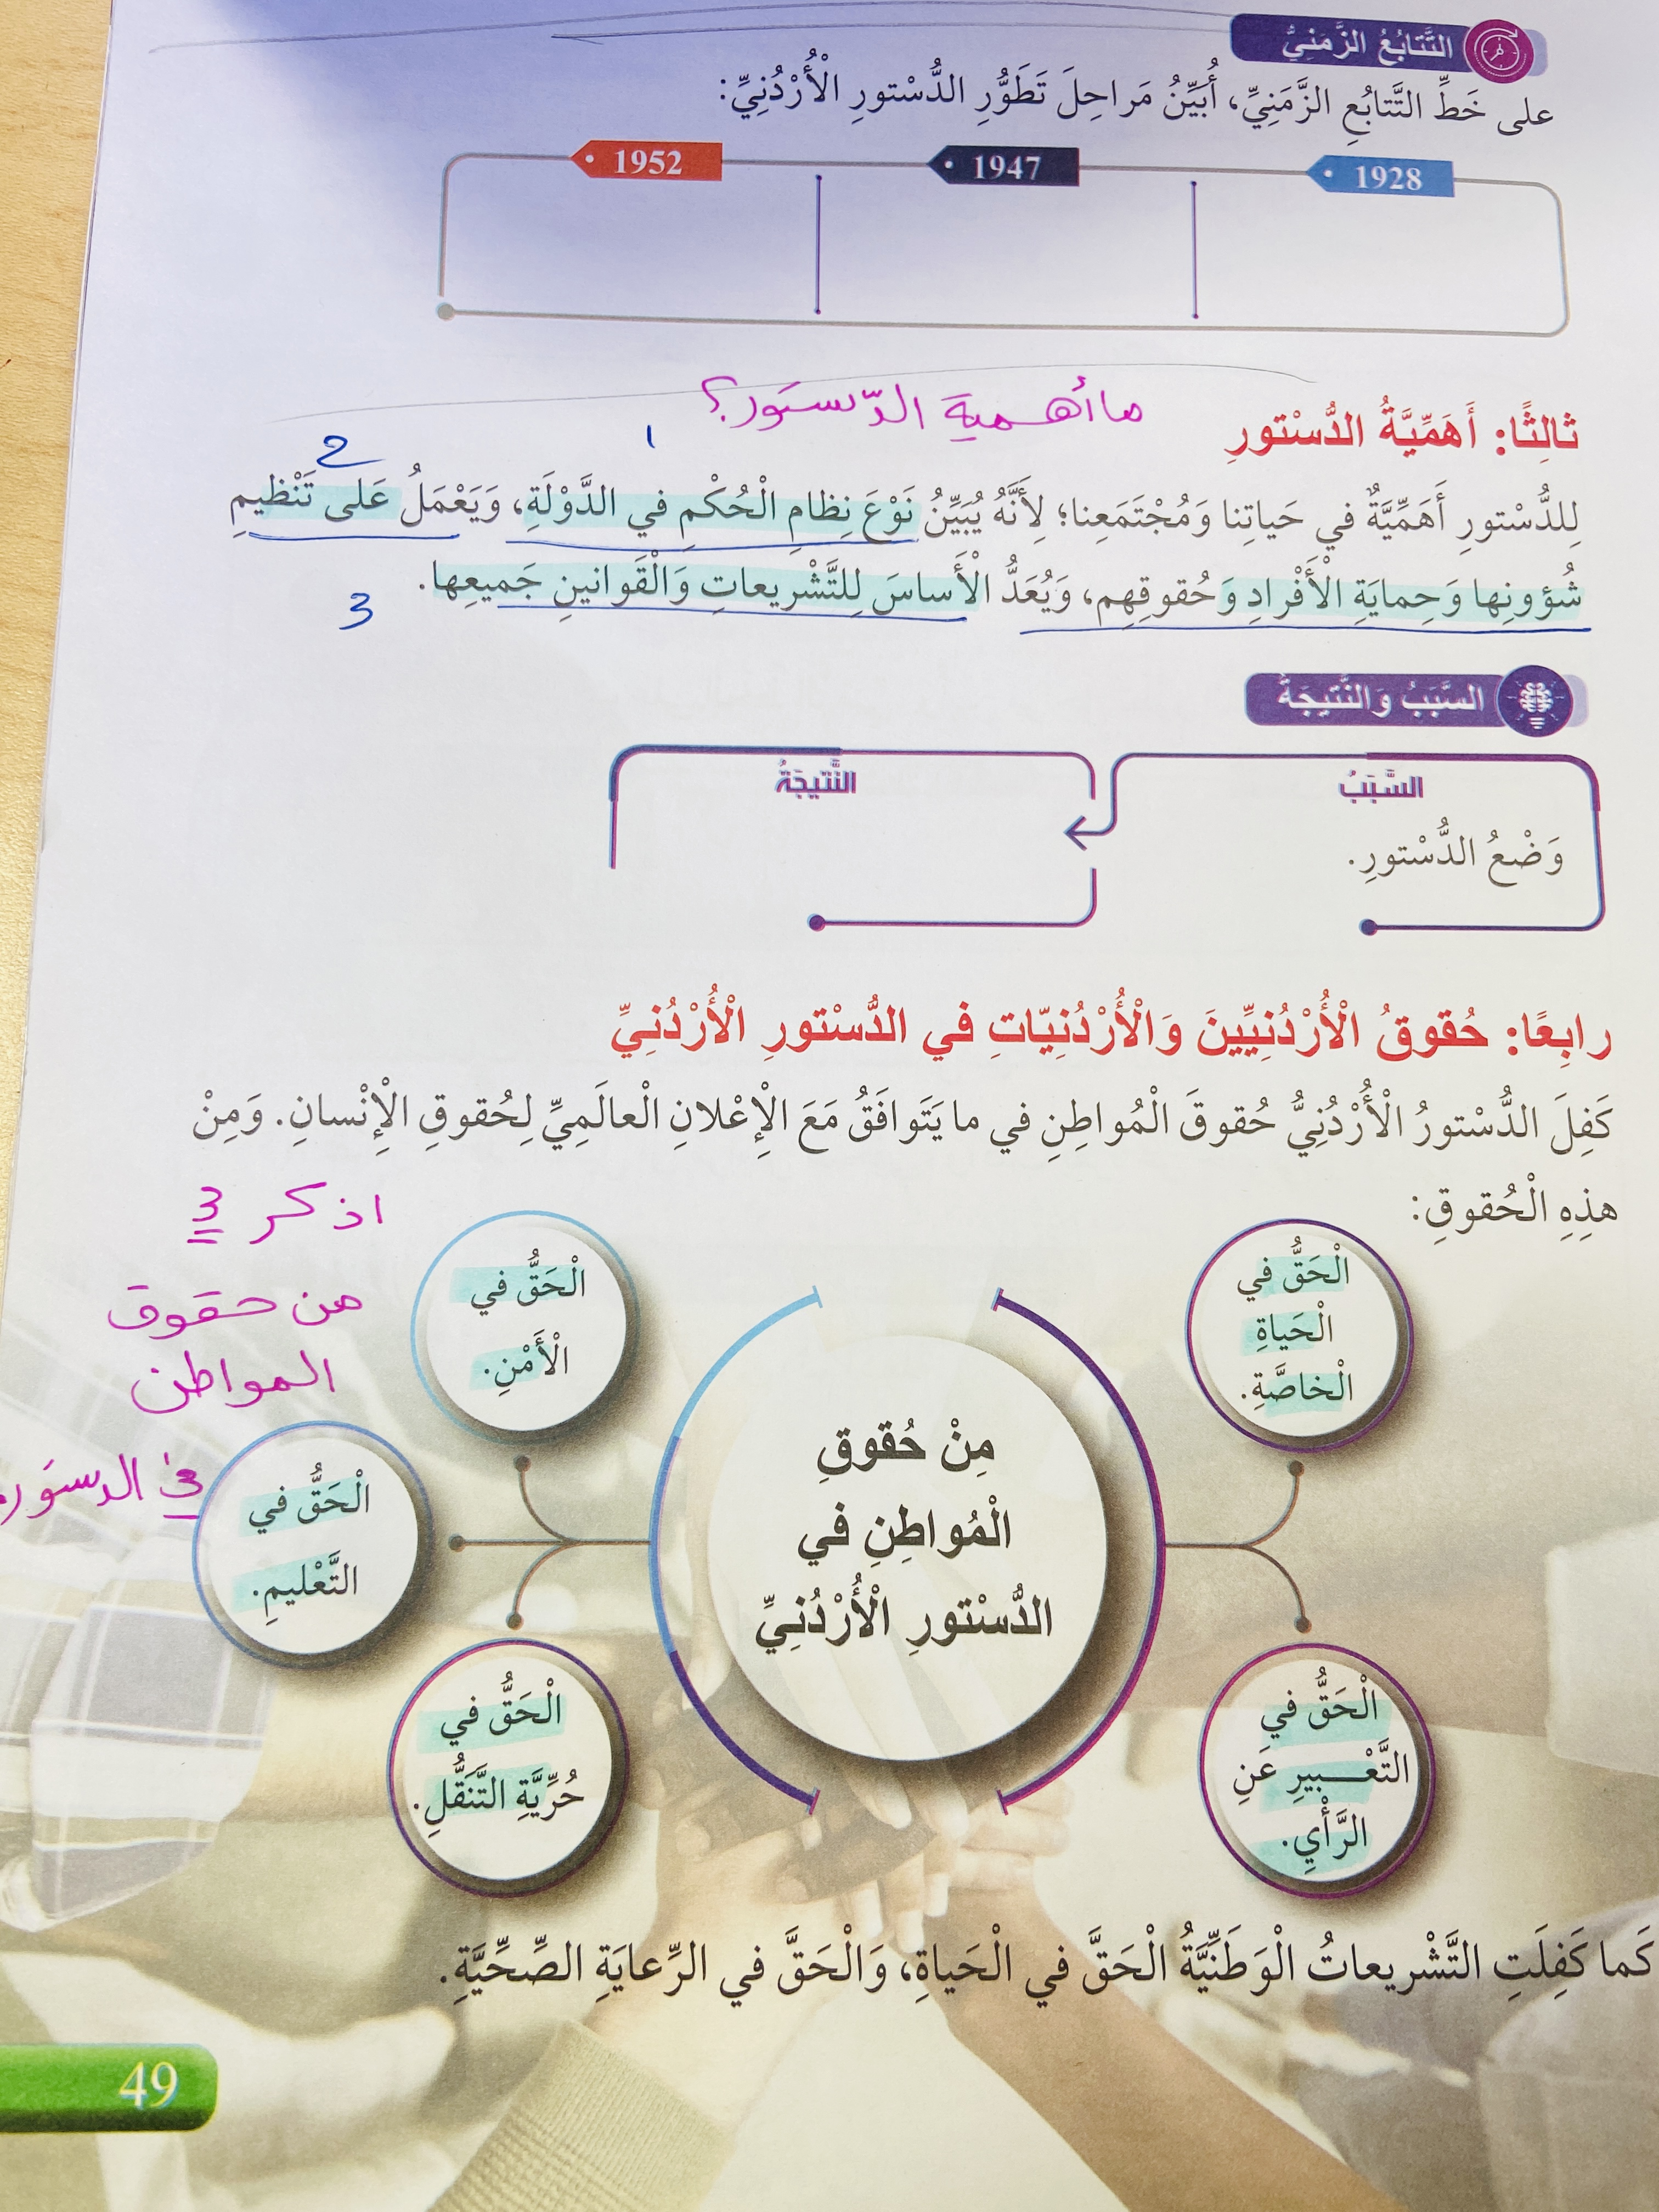 التَّتابُعُ الزَّمَنِيُّ
على خَطِّ التَّتابُعِ الزَّمَنِيِّ، أُبَيِّنُ مَراحِلَ تَطَوُّرِ الدُّسْتورِ الْأُرْدُنِيِّ:
1928
1947
1952
ما أهمية الدّستور؟
ثالِثًا: أَهَمِّيَّةُ الدُّسْتورِ
1
2
لِلدُّسْتورِ أَهَمِّيَّةٌ في حَياتِنا وَمُجْتَمَعِنا؛ لِأَنَّهُ يُبَيِّنُ نَوْعَ نِظامِ الْحُكْمِ في الدَّوْلَةِ، وَيَعْمَلُ عَلى تَنْظيمِ
شُؤونِها وَحِمايَةِ الْأَفْرادِ وَحُقوقِهِم، وَيُعَدُّ الْأَساسَ لِلتَّشْريعاتِ وَالْقَوانينِ جَميعِها.
3
السَّبَبُ وَالنَّتيجَةُ
السَّبَبُ
النَّتيجَةُ
وَضْعُ الدُّسْتورِ.
رابِعًا: حُقوقُ الْأُرْدُنِيّينَ وَالْأُرْدُنِيّاتِ في الدُّسْتورِ الْأُرْدُنِيِّ
كَفِلَ الدُّسْتورُ الْأُرْدُنِيُّ حُقوقَ الْمُواطِنِ في ما يَتَوافَقُ مَعَ الْإِعْلانِ الْعالَمِيِّ لِحُقوقِ الْإِنْسانِ. وَمِنْ
هذِهِ الْحُقوقِ:
اذكر 3
من حقوق
المواطن
في الدستور
الْحَقُّ في
الْحَياةِ
الْخاصَّةِ.
الْحَقُّ في
الْأَمْنِ.
مِنْ حُقوقِ
الْمُواطِنِ في
الدُّسْتورِ الْأُرْدُنِيِّ
الْحَقُّ في
التَّعْليمِ.
الْحَقُّ في
التَّعْـــبيرِ عَنِ
الرَّأْيِ.
الْحَقُّ في
حُرِّيَّةِ التَّنَقُّلِ.
كَما كَفِلَتِ التَّشْريعاتُ الْوَطَنِيَّةُ الْحَقَّ في الْحَياةِ، وَالْحَقَّ في الرِّعايَةِ الصِّحِّيَّةِ.
49